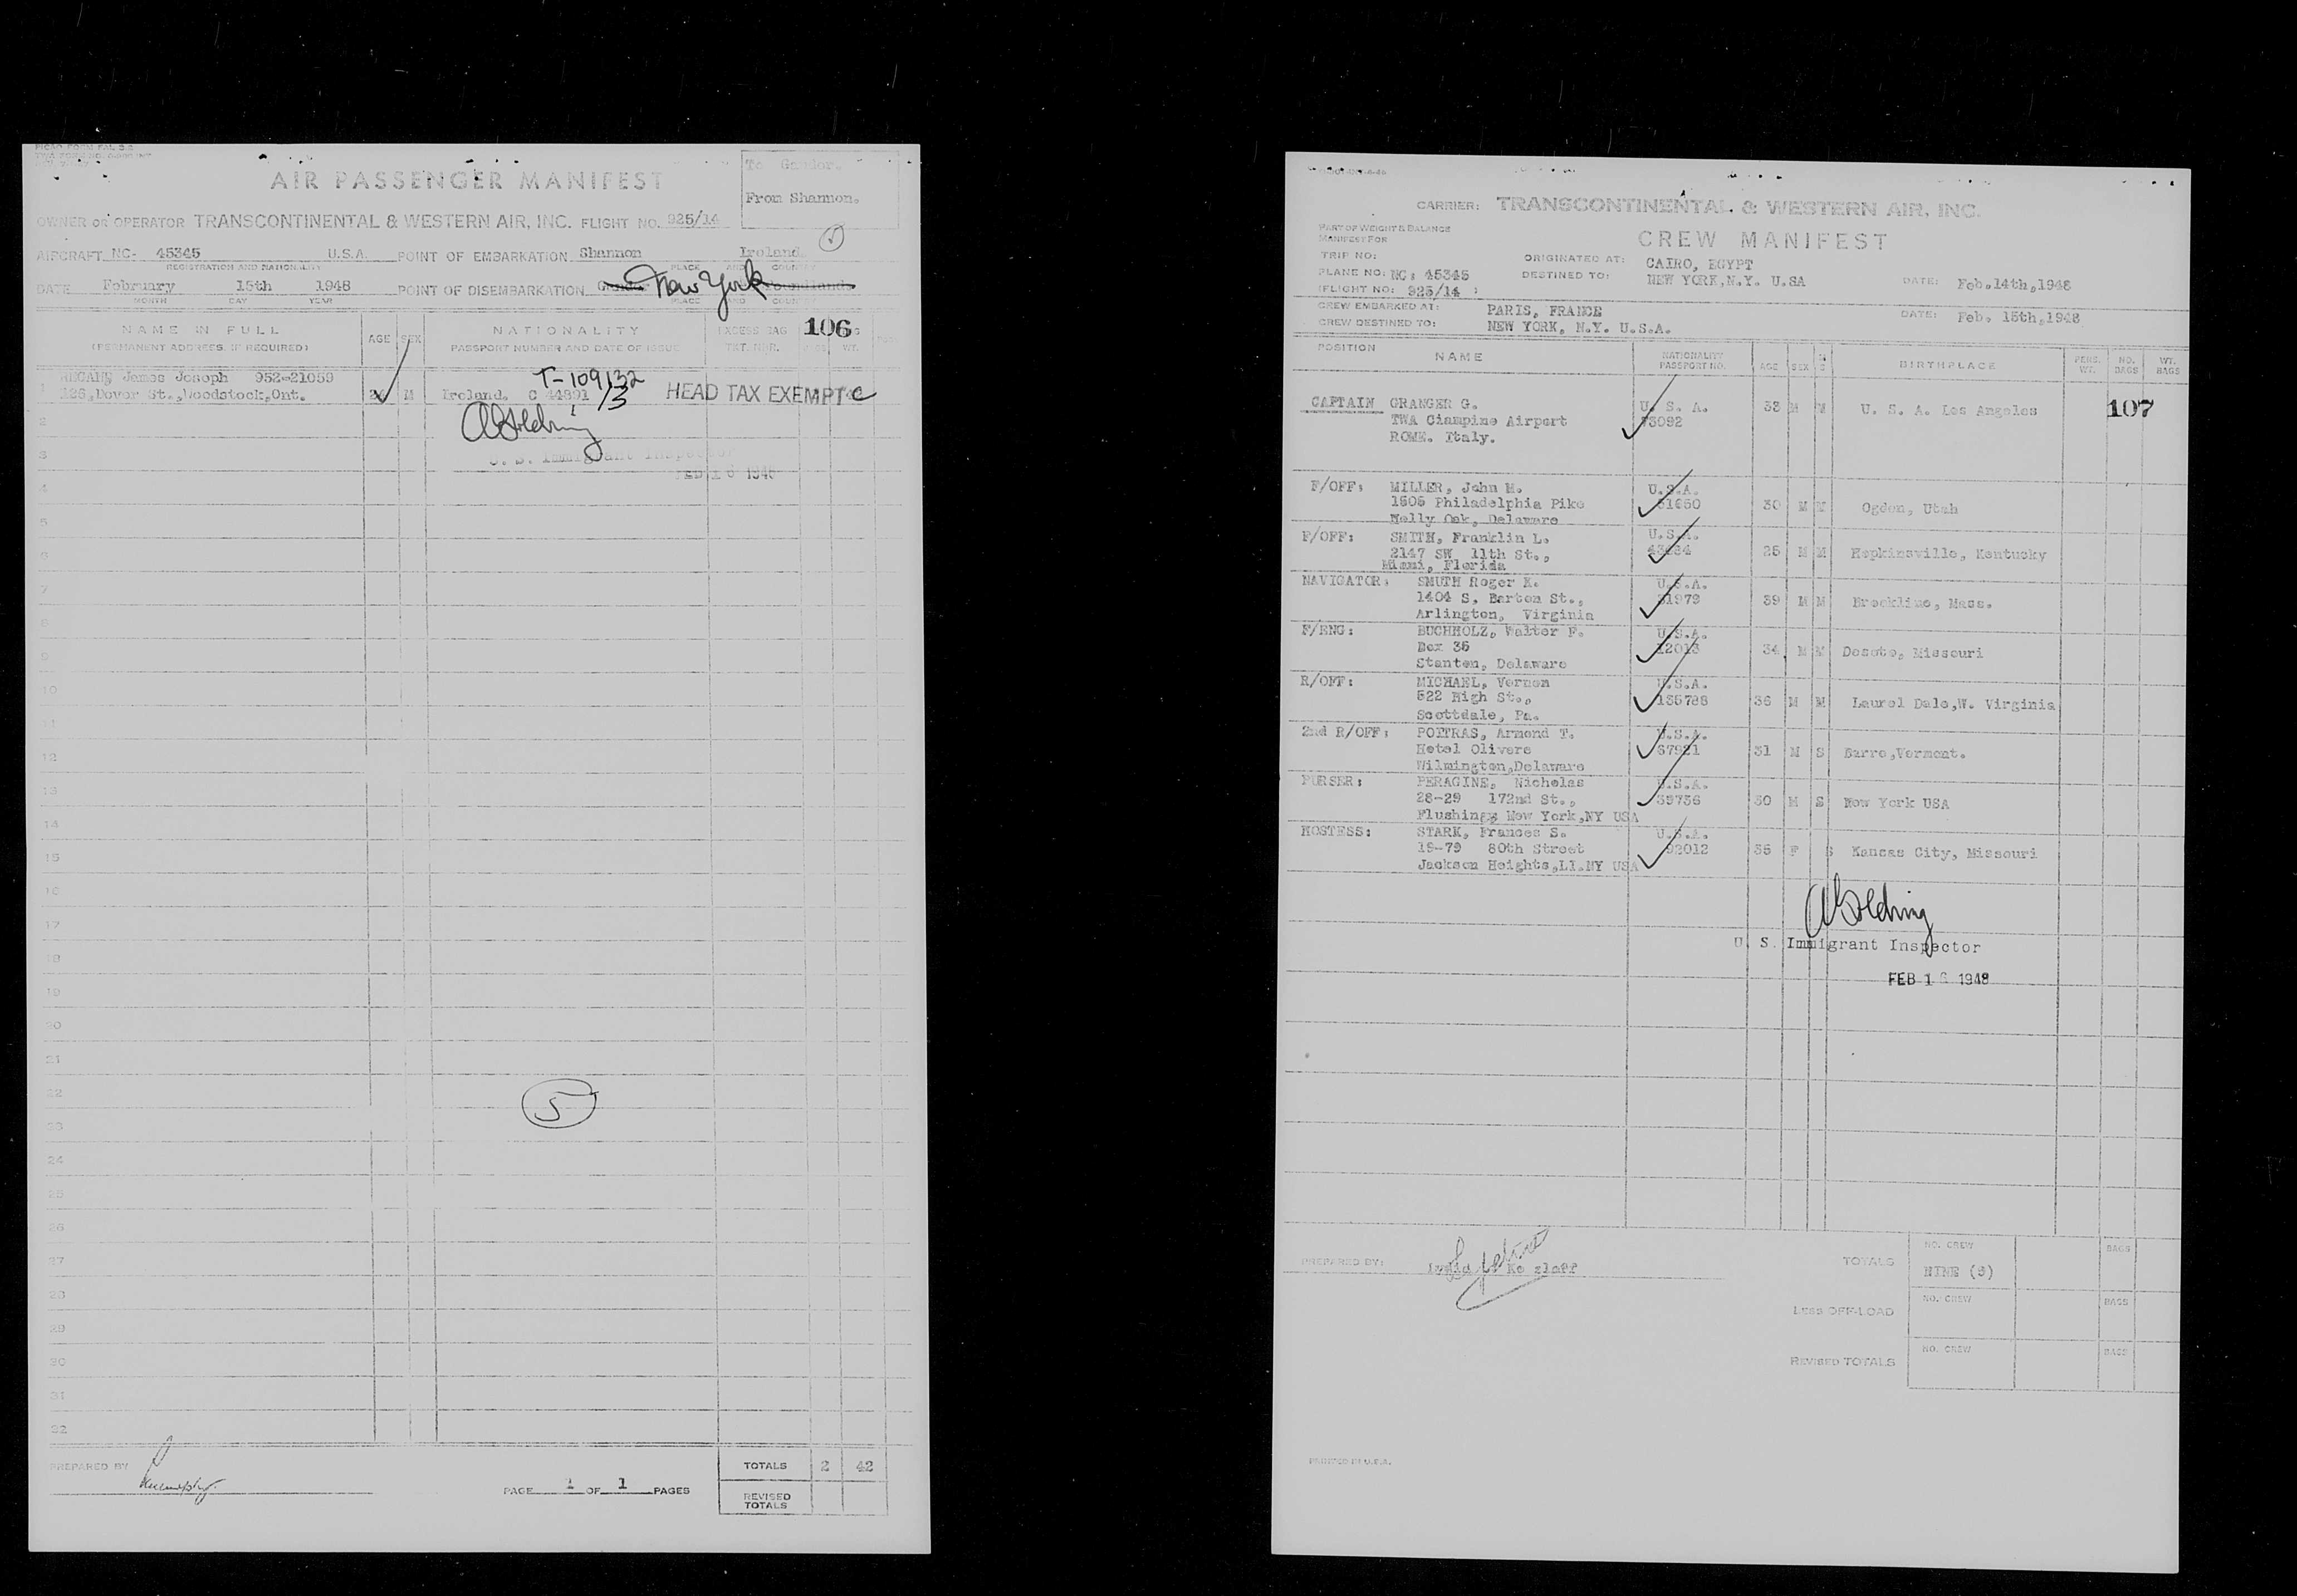 To Gander.
From Shannon.
AIR PASSENGER MANIFEST
OWNER OR OPERATOR TRANSCONTINENTAL & WESTERN AIR, INC. FLIGHT NO. 925/14
AIRCRAFT NC- 45345 U.S.A. POINT OF EMBARKATION Shannon Ireland.
REGISTRATION AND NATIONALITY PLACE AND COUNTRY
DATE February 15th 1948 POINT OF DISEMBARKATION New York
MONTH DAY YEAR PLACE AND COUNTRY
NAME IN FULL AGE SEX NATIONALITY EXCESS BAG 106
(PERMANENT ADDRESS, IF REQUIRED) PASSPORT NUMBER AND DATE OF ISSUE TKT. NBR. WT.
T-109132
1 REGAN, James Joseph 952-21059
126, Dover St., Woodstock, Ont. M Ireland. C 44891 /3 HEAD TAX EXEMPT C
2 AGolding
3 U. S. Immigrant Inspector
FEB 16 1948
4
5
6
7
8
9
10
11
12
13
14
15
16
17
18
19
20
21
22
5
23
24
25
26
27
28
29
30
31
32
PREPARED BY
PAGE 1 OF 1 PAGES
TOTALS 2 42
REVISED TOTALS
CARRIER: TRANSCONTINENTAL & WESTERN AIR, INC.
PART OF WEIGHT & BALANCE
MANIFEST FOR
CREW MANIFEST
TRIP NO: ORIGINATED AT: CAIRO, EGYPT
PLANE NO: NC: 45345 DESTINED TO: NEW YORK, N.Y. U.SA DATE: Feb.14th,1948
FLIGHT NO: 925/14
CREW EMBARKED AT: PARIS, FRANCE DATE: Feb. 15th,1948
CREW DESTINED TO: NEW YORK, N.Y. U.S.A.
POSITION NAME NATIONALITY PASSPORT NO. AGE SEX BIRTHPLACE PERS. WT. NO. BAGS WT. BAGS
CAPTAIN GRANGER G. U. S. A. 33 M M U. S. A. Los Angeles 107
TWA Ciampine Airport 73092
ROME. Italy.
F/OFF: MILLER, John M. U.S.A.
1505 Philadelphia Pike 51650 30 M M Ogden, Utah
Holly Oak, Delaware
F/OFF: SMITH, Franklin L. U.S.A.
2147 SW 11th St., 25 M M Hopkinsville, Kentucky
Miami, Florida
NAVIGATOR: SMUTH Roger K. U.S.A.
1404 S. Barton St., 31973 39 M M Brookline, Mass.
Arlington, Virginia
F/ENG: BUCHHOLZ, Walter F. U.S.A.
Box 36 12013 34 M M Desoto, Missouri
Stanton, Delaware
R/OFF: MICHAEL, Vernon U.S.A.
522 High St., 135788 36 M M Laurel Dale,W. Virginia
Scottdale, Pa.
2nd R/OFF: POITRAS, Armond T. U.S.A.
Hotel Olivere 67921 31 M S Barre,Vermont.
Wilmington,Delaware
PURSER: PERAGINE, Nicholas U.S.A.
28-29 172nd St., 35736 30 M S New York USA
Flushing, New York,NY USA
HOSTESS: STARK, Frances S. U.S.A.
19-79 80th Street 92012 F S Kansas City, Missouri
Jackson Heights,LI.NY USA
AGolding
U. S. Immigrant Inspector
FEB 16 1948
PREPARED BY:
TOTALS NO. CREW NINE (9) BAGS
LESS OFF-LOAD NO. CREW BAGS
REVISED TOTALS NO. CREW BAGS
PRINTED IN U.S.A.